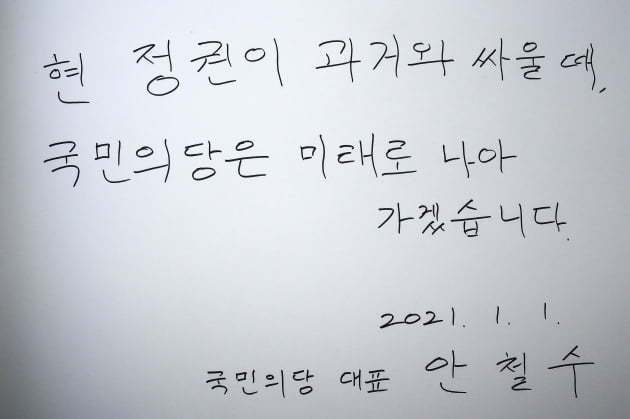 현 정권이 과거와 싸울 때,
국민의당은 미래로 나아
가겠습니다.
2021. 1. 1.
국민의당 대표 안 철 수